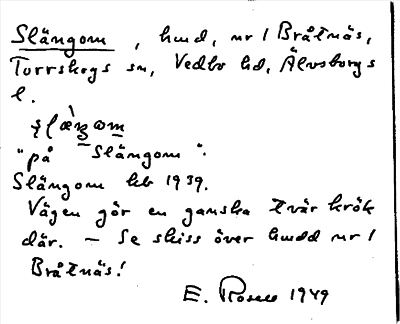 Slängom, hmd, nr 1 Bråtnäs,
Torrskogs sn, Vedbo hd, Älvsborgs
l.
"på Slängom".
Slängom kb 1939.
Vägen gör en ganska tvär krök
där. – Se skiss över hmdd nr 1
Bråtnäs!
E. 1949